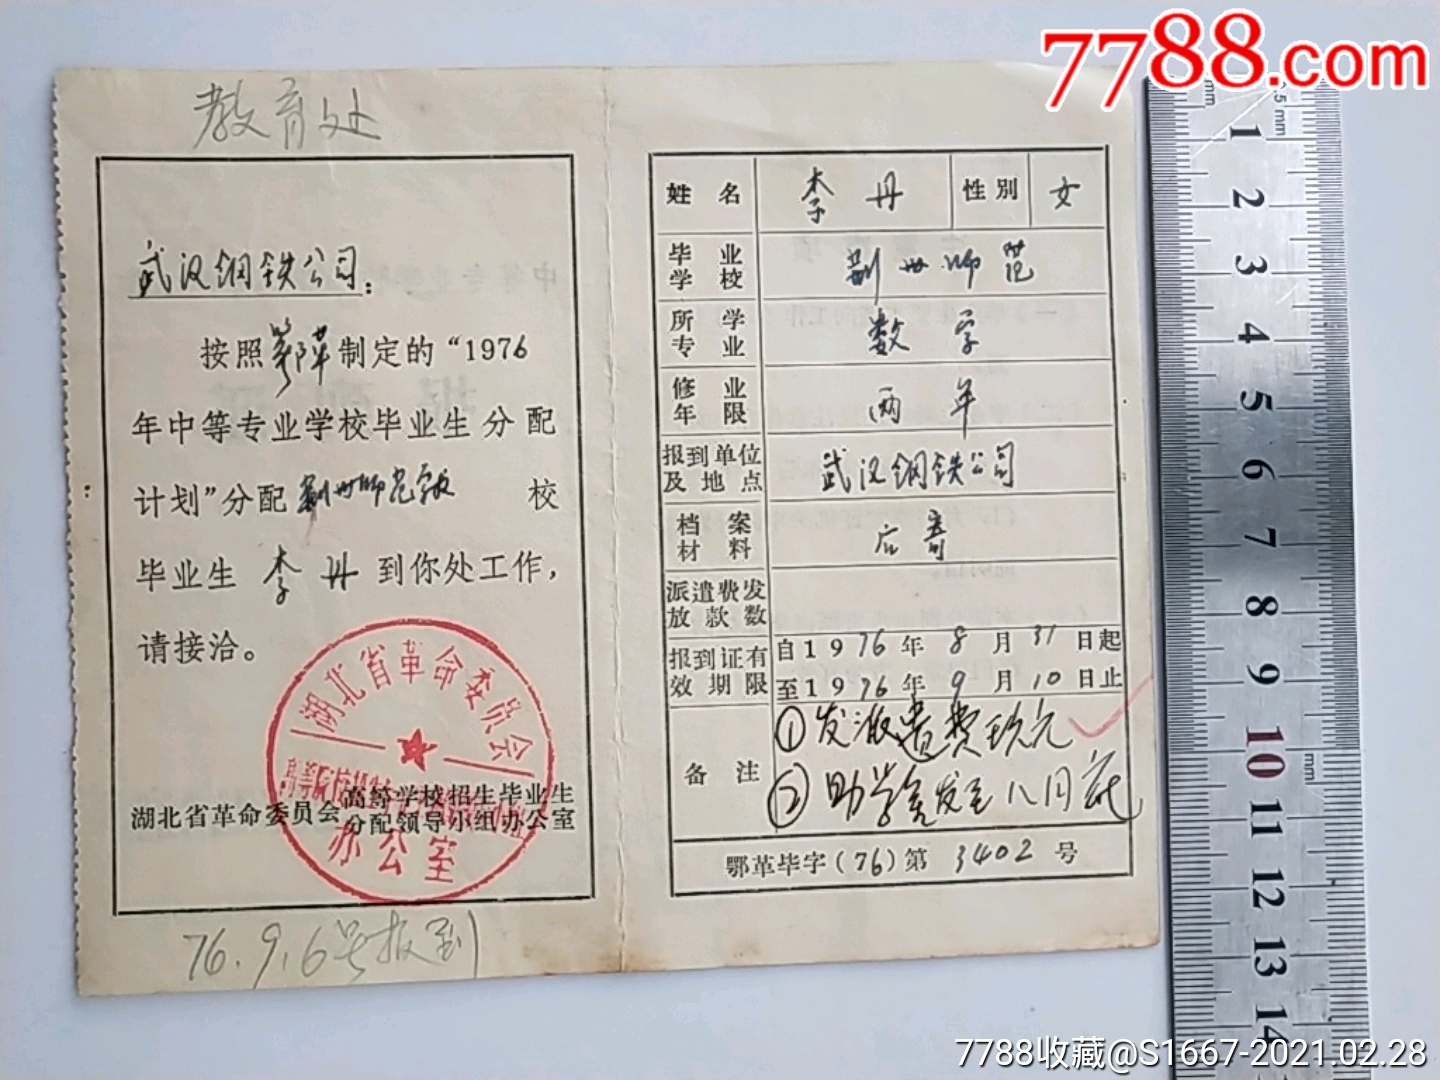 7788.com
教育处
武汉钢铁公司：
按照鄂革制定的“1976
年中等专业学校毕业生分配
计划”分配荆州师范学校 校
毕业生 李丹 到你处工作，
请接洽。
湖北省革命委员会
办公室
湖北省革命委员会高等学校招生毕业生分配领导小组办公室
76.9.6号报到
姓名 李丹 性别 女
毕业学校 荆州师范
所学专业 数学
修业年限 两年
报到单位及地点 武汉钢铁公司
档案材料 后寄
派遣费发放款数
报到证有效期限 自1976年8月31日起
至1976年9月10日止
备注 ①发派遣费玖元
②助学金发至八月底
鄂革毕字(76)第3402号
mm
0.5 mm
1
2
3
4
5
6
7
8
9
10
mm
11
12
13
14
7788收藏@S1667-2021.02.28